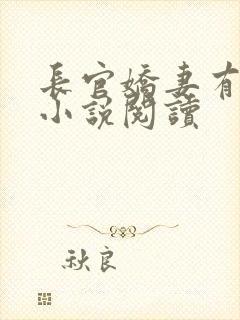 長官嬌妻有
小說閱讀
秋良